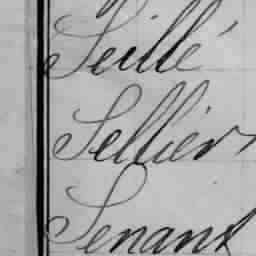 Seillé
Sellier
Senant